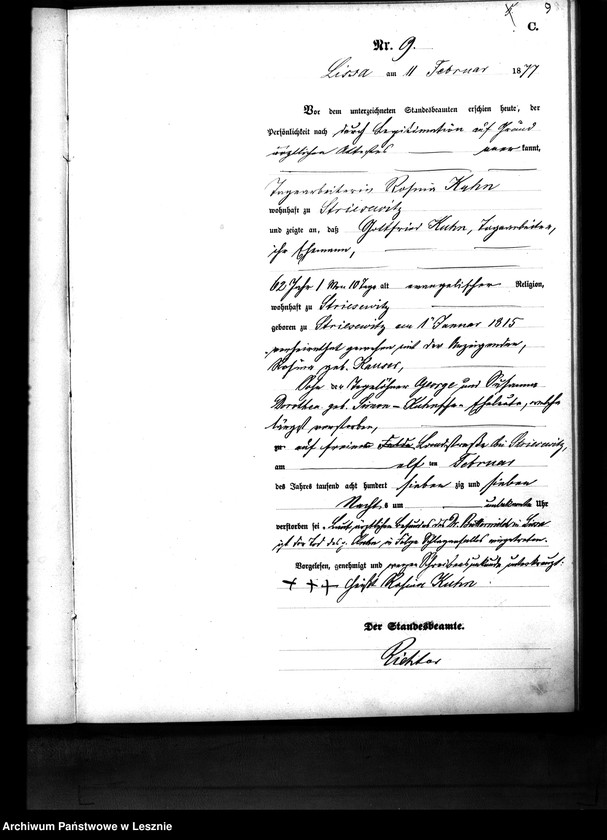 9
C.
Nr. 9.
Lissa am 11 Februar 1877
Vor dem unterzeichneten Standesbeamten erschien heute, der
Persönlichkeit nach durch Legitimation auf Grund
ärztlichen Attestes kannt,
Tagearbeiterin Rosina Kuhn
wohnhaft zu Striesewitz
und zeigte an, daß Gottfried Kuhn, Tagearbeiter,
ihr Ehemann,
62 Jahr 1 Mon 10 Tage alt evangelischer Religion,
wohnhaft zu Striesewitz
geboren zu Striesewitz am 1 Januar 1815
verheirathet gewesen mit der Anzeigenden,
Rosina geb.
Sohn der Tagelöhner George und Susanna
Dorothea geb. Kuhnschen Eheleute, welche
längst verstorben,
zu auf freiem Felde Landstraße bei Striesewitz,
am elf ten Februar
des Jahres tausend acht hundert sieben zig und sieben
Nacht s um unbekannte Uhr
verstorben sei. Laut ärztlichen Befundes des Dr. in Lissa
ist der Tod des p. Kuhn in Folge Schlaganfalles eingetreten.
Vorgelesen, genehmigt und wegen Schreibensunkunde unterkreuzt:
+ + + Rosina Kuhn
Der Standesbeamte.
Richter
Archiwum Państwowe w Lesznie